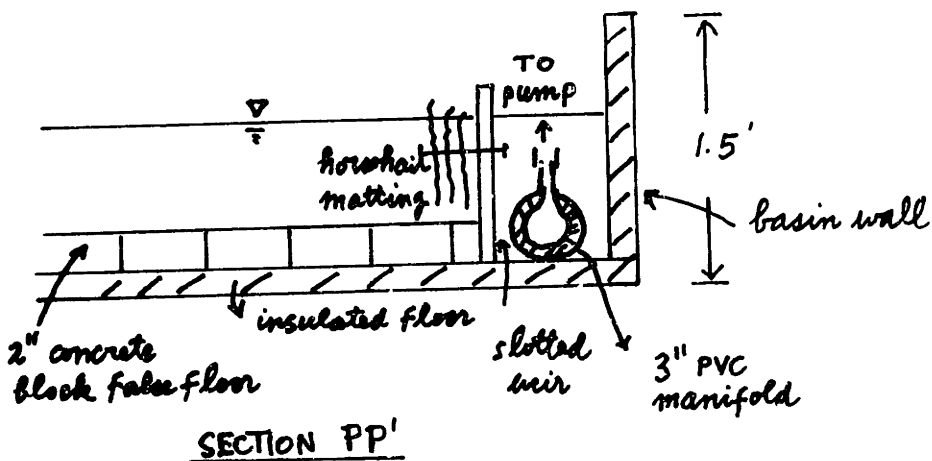 TO
pump
1.5'
horsehair
matting
basin wall
insulated floor
2" concrete
block false floor
slotted
weir
3" PVC
manifold
SECTION PP'